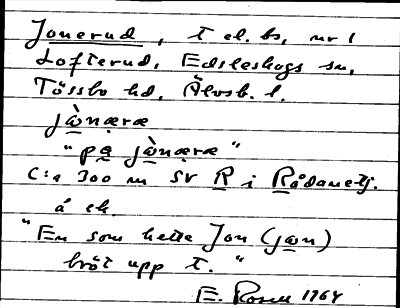 Jonerud, t el. bs, nr 1
Lofterud, Edsleskogs sn,
Tössbo hd, Älvsb. l.
jὼnæræ
"pa̱ jὼnæræ"
C:a 300 m SV R i Rådanetj.
å ek.
"En som hette Jon (jωn)
bröt upp t."
E. Rosen 1964